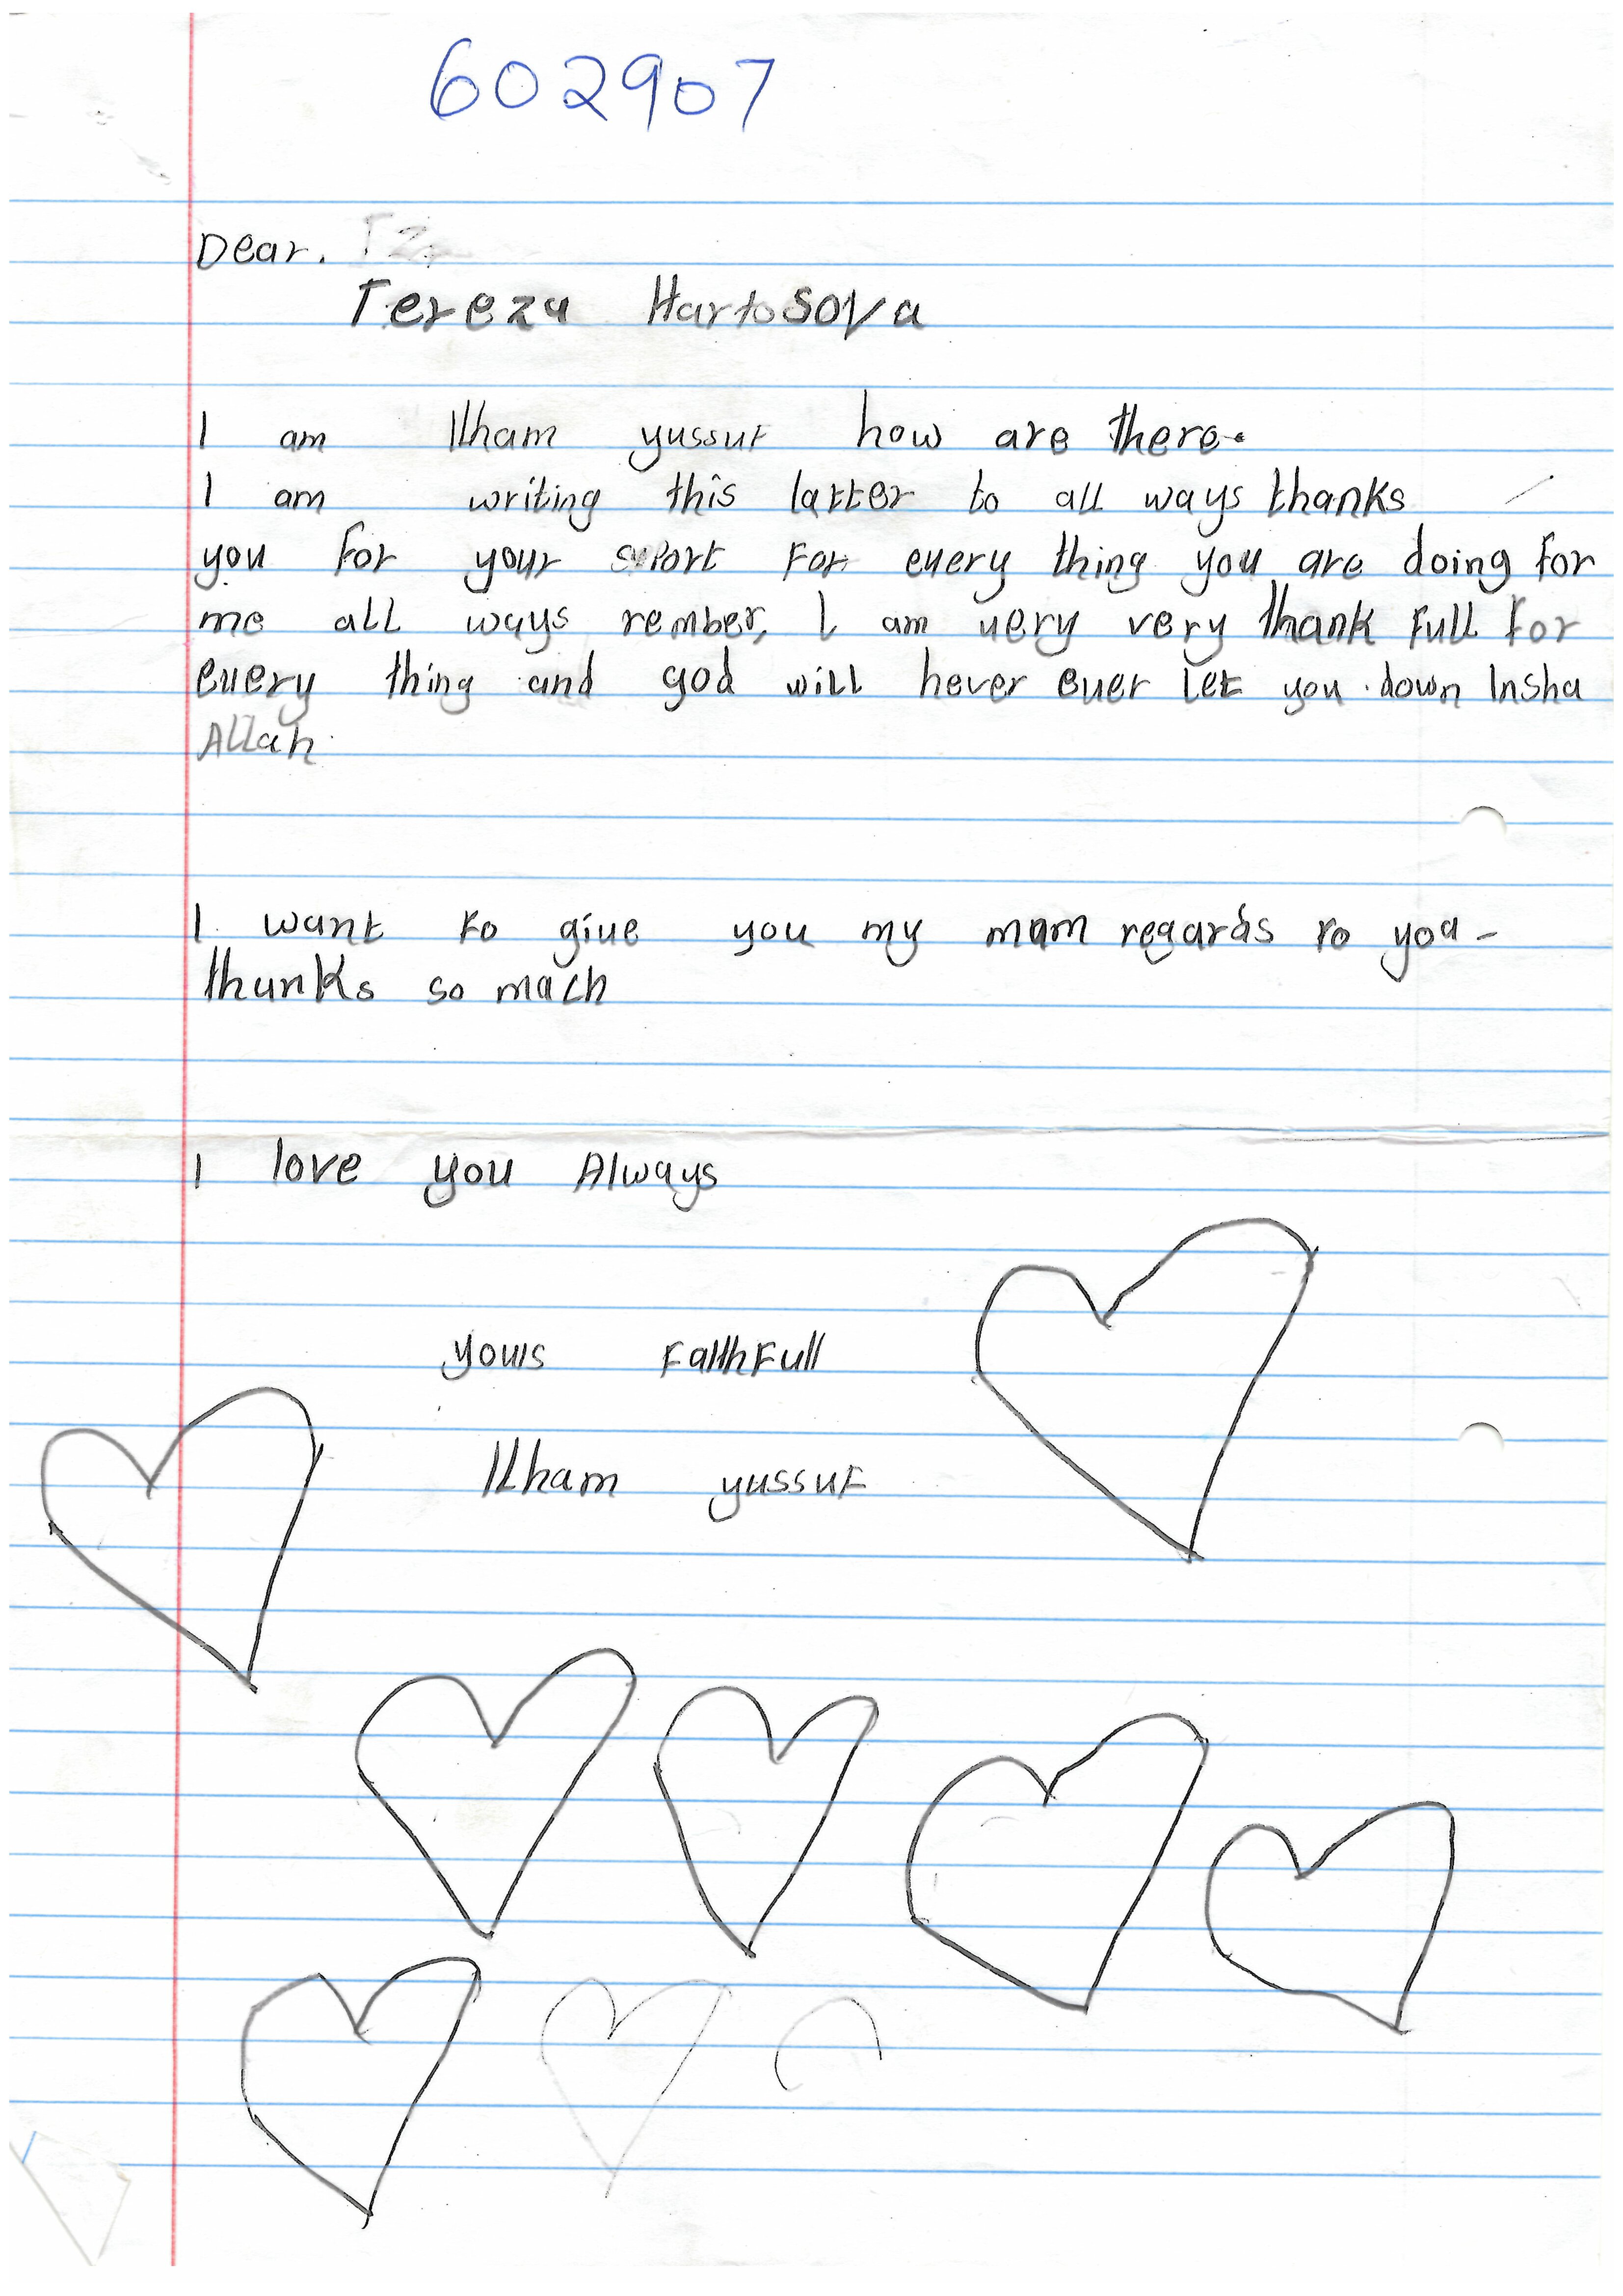 602907
Dear.
Tereza HartoSova
I am Ilham yussuf how are there.
I am writing this latter to all ways thanks
you for your suport For every thing you are doing for
me all ways rember, I am very very thank Full for
every thing and god will never ever let you down Insha
Allah.
I want to give you my mam regards to you -
thanks so mach
I love you Always
yours FaithFull
Ilham yussuf